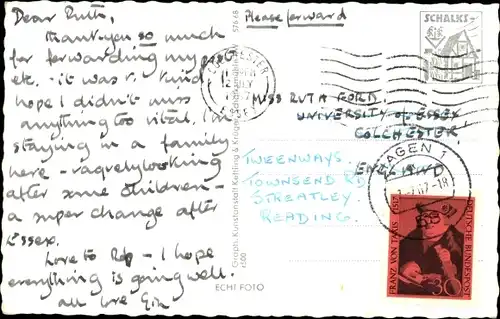 Dear Ruth,
Thank you so much
for forwarding my
etc. - it was v. kind.
hope I didn't miss
anything too vital. I'm
staying in a family
here - vaguely looking
after some children -
a super change after
Essex.
Love to - I hope
everything is going well.
all love
Please forward
MISS RUTH FORD,
UNIVERSITY of ESSEX
COLCHESTER,
ENGLAND
TWEENWAYS.
TOWNSEND RD
STREATLEY
READING.
Graph. Kunstanstalt
ECHT FOTO
SCHALKS-
COLCHESTER
JLY
HAGEN 1
-18
FRANZ VON TAXIS 1517
DEUTSCHE BUNDESPOST
30